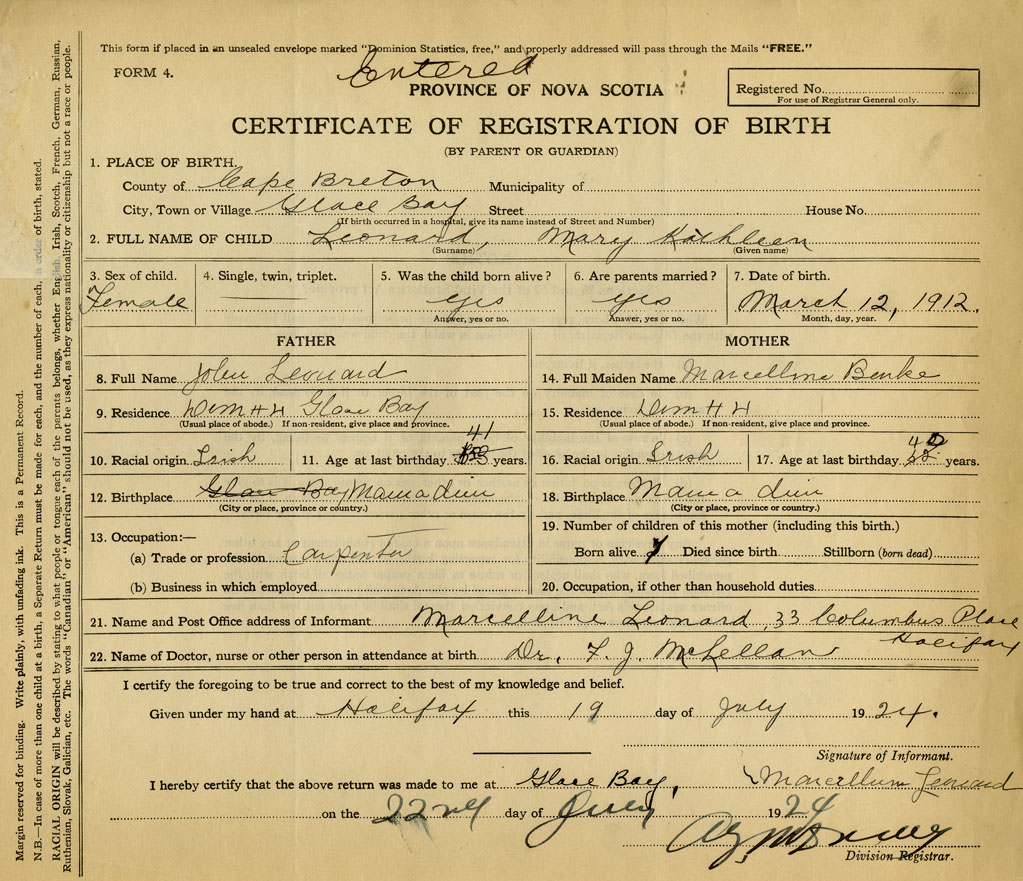 This form if placed in an unsealed envelope marked "Dominion Statistics, free," and properly addressed will pass through the Mails "FREE."
Entered
FORM 4.
PROVINCE OF NOVA SCOTIA
Registered No.
For use of Registrar General only.
CERTIFICATE OF REGISTRATION OF BIRTH
(BY PARENT OR GUARDIAN)
1. PLACE OF BIRTH.
County of Cape Breton Municipality of
City, Town or Village Glace Bay Street House No.
(If birth occurred in a hospital, give its name instead of Street and Number)
2. FULL NAME OF CHILD Leonard, Mary Kathleen
(Surname) (Given name)
3. Sex of child. 4. Single, twin, triplet. 5. Was the child born alive? 6. Are parents married? 7. Date of birth.
Female yes yes March 12, 1912
Answer, yes or no. Answer, yes or no. Month, day, year.
FATHER
8. Full Name John Leonard
9. Residence Dom # 4 Glace Bay
(Usual place of abode.) If non-resident, give place and province.
10. Racial origin Irish 11. Age at last birthday 41 years.
12. Birthplace Glace Bay Mainadieu
(City or place, province or country.)
13. Occupation:—
(a) Trade or profession Carpenter
(b) Business in which employed
MOTHER
14. Full Maiden Name Marcelline Benke
15. Residence Dom # 4
(Usual place of abode.) If non-resident, give place and province.
16. Racial origin Irish 17. Age at last birthday years.
18. Birthplace Mainadieu
(City or place, province or country.)
19. Number of children of this mother (including this birth.)
Born alive 7 Died since birth Stillborn (born dead)
20. Occupation, if other than household duties
21. Name and Post Office address of Informant Marcelline Leonard, 33 Columbus Place
Halifax
22. Name of Doctor, nurse or other person in attendance at birth Dr. F. J. McLellan
I certify the foregoing to be true and correct to the best of my knowledge and belief.
Given under my hand at Halifax this 19 day of July 1924.
Signature of Informant.
I hereby certify that the above return was made to me at Glace Bay, Marcelline Leonard
on the 22nd day of July 1924
Division Registrar.
Margin reserved for binding. Write plainly, with unfading ink. This is a Permanent Record.
N.B.—In case of more than one child at a birth, a Separate Return must be made for each, and the number of each, in order of birth, stated.
RACIAL ORIGIN will be described by stating to what people or tongue each of the parents belongs, whether English, Irish, Scotch, French, German, Russian,
Ruthenian, Slovak, Galician, etc. The words "Canadian" or "American" should not be used, as they express nationality or citizenship but not a race or people.